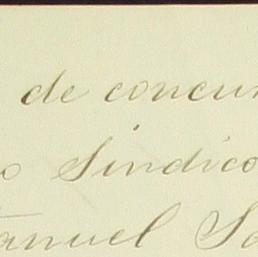 de concur
o Sindico
anuel Sa